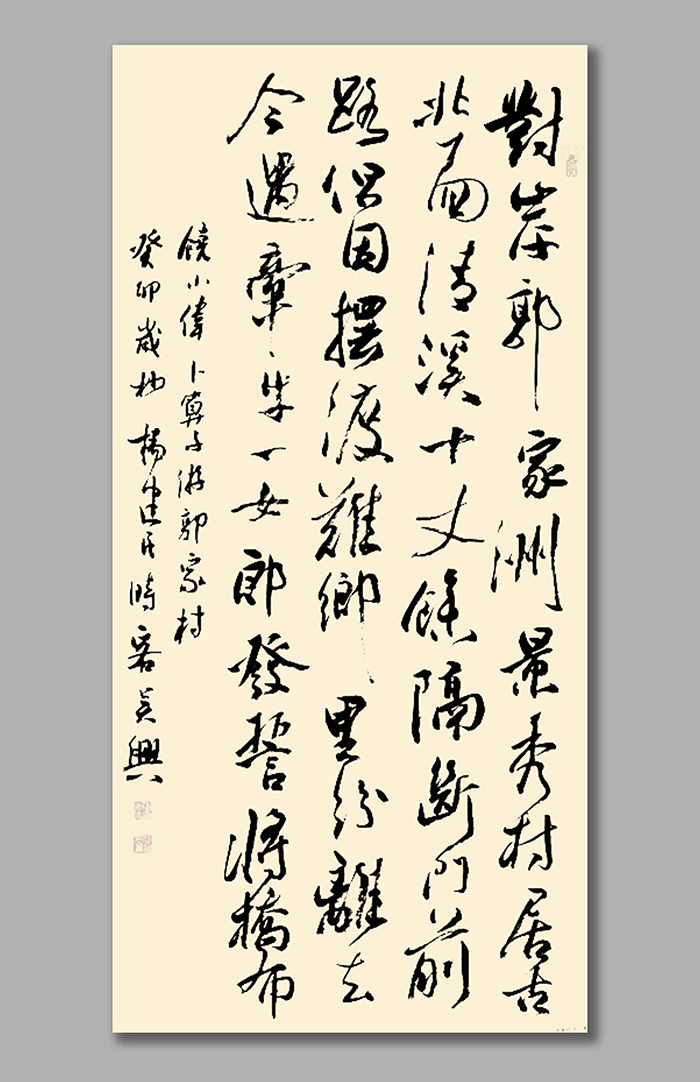 對岸郭家洲景秀村居古
北面清溪十丈餘隔斷門前
路但因擺渡難鄉里紛離去
今遇牽牛一女郎發誓將橋布
饒小偉卜算子游郭家村
癸卯歲杪楊建民時客吳興